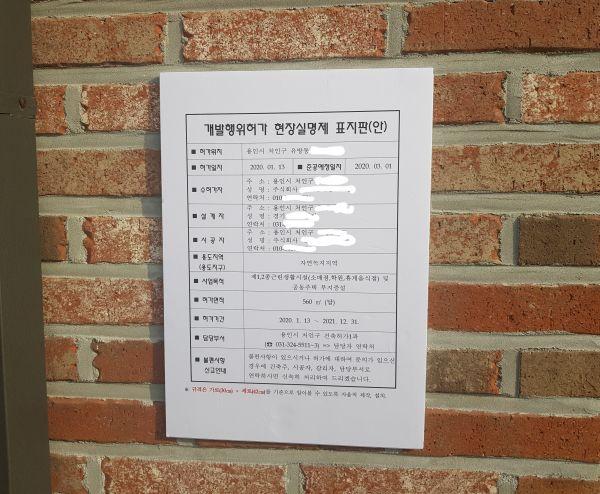 개발행위허가 현장실명제 표지판(안)
■ 허가위치 용인시 처인구 유방동
■ 허가일자 2020. 01. 13 ■ 준공예정일자 2020. 03. 01
■ 수허가자 주 소 : 용인시 처인구
성 명 : 주식회사
연락처 : 010
■ 설 계 자 주 소 : 용인시 처인구
성 명 : 경기
연락처 : 031-
■ 시 공 자 주 소 : 용인시 처인구
성 명 : 주식회사
연락처 : 010-
■ 용도지역 (용도지구) 자연녹지지역
■ 사업목적 제1,2종근린생활시설(소매점,학원,휴게음식점) 및
공동주택 부지증설
■ 허가면적 560 ㎡ (답)
■ 허가기간 2020. 1. 13 ~ 2021. 12. 31.
■ 담당부서 용인시 처인구 건축허가1과
(☎ 031-324-5511~3) => 담당자 연락처
■ 불편사항 신고안내 불편사항이 있으시거나 허가에 대하여 문의가 있으신
경우에 건축주, 시공자, 감리자, 담당부서로
연락하시면 신속히 처리하여 드리겠습니다.
※ 규격은 가로(30cm) × 세로(42cm)를 기준으로 알아볼 수 있도록 자율적 제작, 설치.